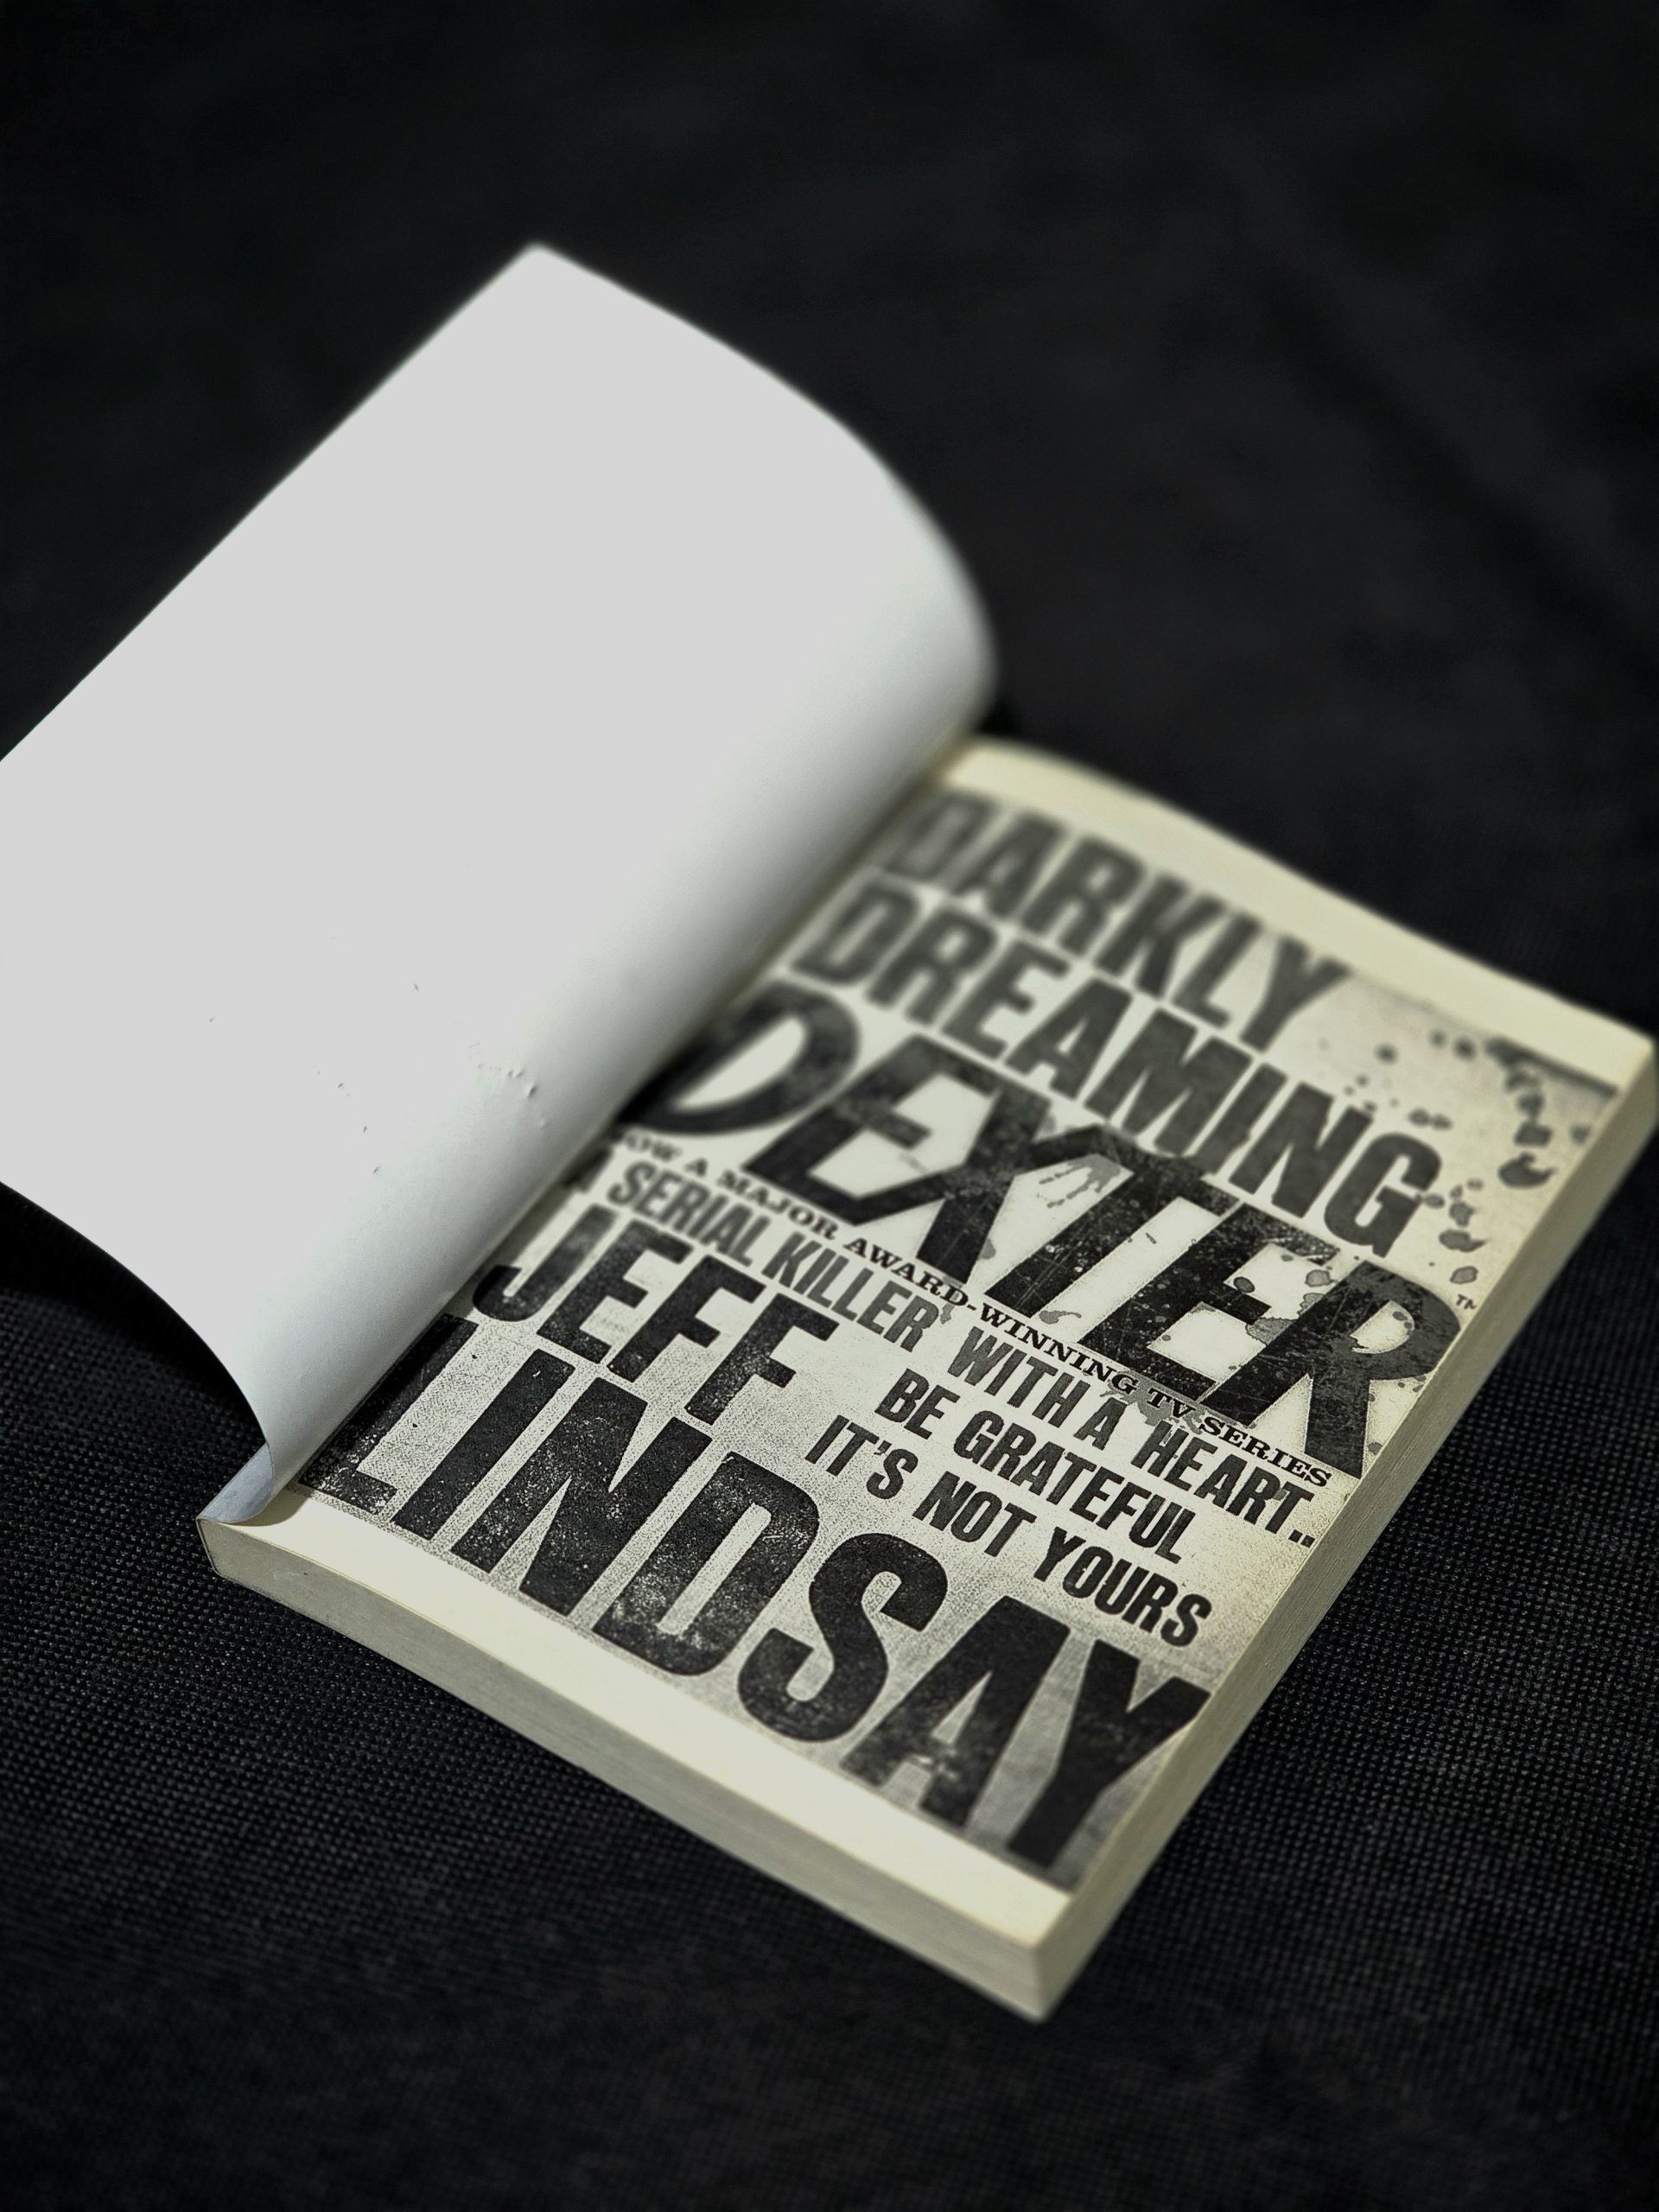 DARKLY
DREAMING
DEXTER
TM
NOW A MAJOR AWARD-WINNING TV SERIES
A SERIAL KILLER WITH A HEART..
BE GRATEFUL
IT'S NOT YOURS
JEFF
LINDSAY